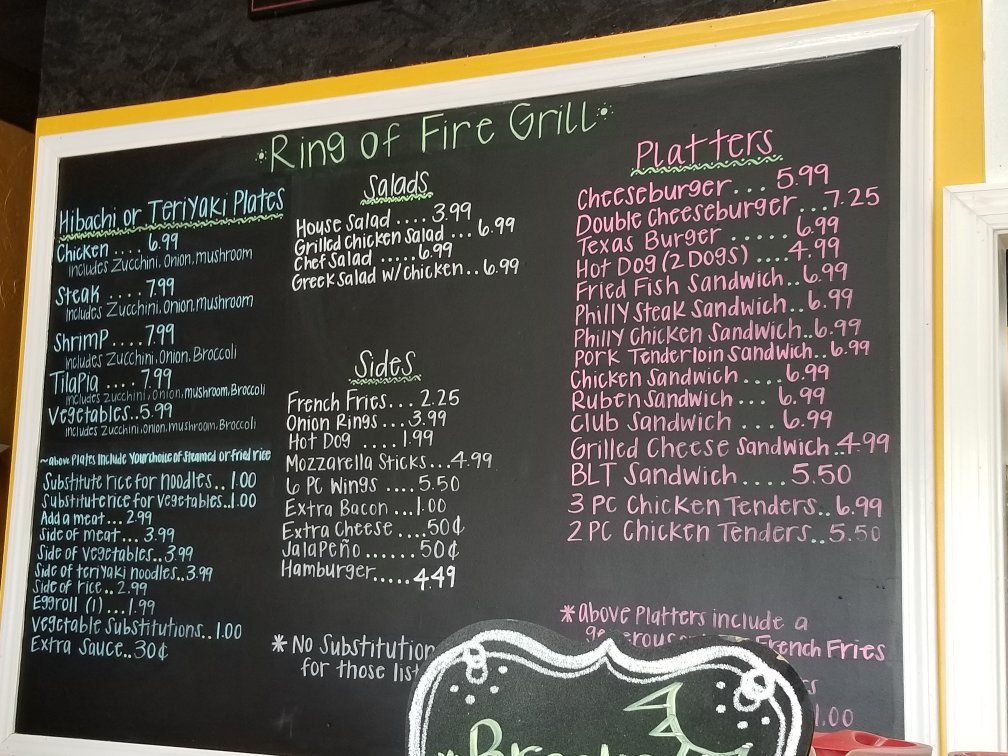 Ring of Fire Grill
Hibachi or Teriyaki Plates
Chicken .... 6.99
includes Zucchini, Onion, mushroom
Steak .... 7.99
Includes Zucchini, Onion, mushroom
Shrimp....7.99
includes Zucchini, Onion, Broccoli
Tilapia .... 7.99
includes Zucchini, onion, mushroom, Broccoli
Vegetables..5.99
includes Zucchini, onion, mushroom, Broccoli
~above Plates include Your choice of Steamed or fried rice
Substitute rice for noodles.. 1.00
Substitute rice for vegetables..1.00
Add a meat... 2.99
Side of meat... 3.99
Side of vegetables.. 3.99
Side of teriyaki noodles..3.99
Side of rice.. 2.99
Eggroll (1)...1.99
vegetable Substitutions..1.00
Extra Sauce..30¢
Salads
House Salad .... 3.99
Grilled Chicken Salad ... 6.99
Chef Salad .....6.99
Greek Salad w/chicken..6.99
Sides
French Fries... 2.25
Onion Rings...3.99
Hot Dog ....1.99
Mozzarella Sticks...4.99
6 PC Wings ....5.50
Extra Bacon ...1.00
Extra Cheese ....50¢
Jalapeño ......50¢
Hamburger.....4.49
*No Substitution
for those
Platters
Cheeseburger... 5.99
Double Cheeseburger...7.25
Texas Burger ..... 6.99
Hot Dog (2 Dogs) ....4.99
Fried Fish Sandwich..6.99
Philly Steak Sandwich..6.99
Philly Chicken Sandwich..6.99
Pork Tenderloin Sandwich..6.99
Chicken Sandwich ....6.99
Ruben Sandwich ... 6.99
Club Sandwich ... 6.99
Grilled Cheese Sandwich..4.99
BLT Sandwich.....5.50
3 PC Chicken Tenders..6.99
2 PC Chicken Tenders..5.50
*above Platters include a
French Fries
1.00